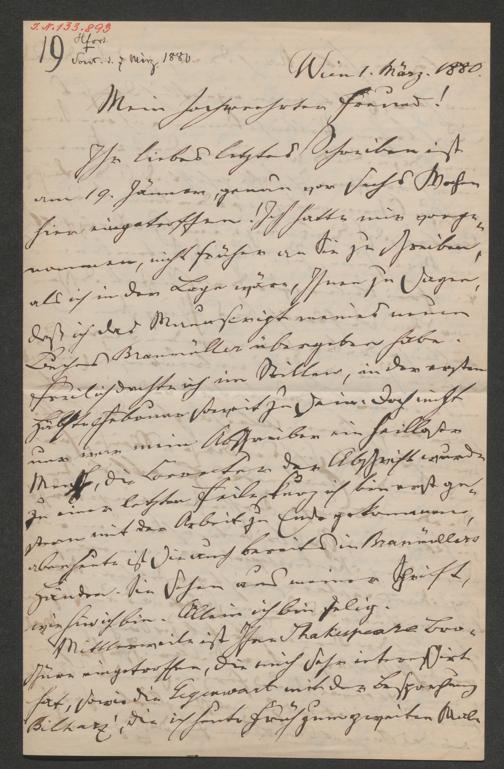 I.N. 133.893
19
Sort. d. 7 März 1880.
Wien 1. März. 1880.
Mein hochverehrter Freund!
Ihr liebes letztes Schreiben ist
am 19. Jänner, genau vor sechs Wochen
hier eingetroffen! Ich hatte mir vorge-
nommen, nicht früher an Sie zu schreiben,
als ich in der Lage wäre, Ihnen zu sagen,
daß ich das Manuscript meines neuen
Buches Braumüller übergeben habe.
Freilich dachte ich im Stillen, in der ersten
Hälfte Februar soweit zu sein. Doch nicht
nur war mein Abschreiber ein heilloser
Mensch, die Correctur der Abschrift wurde
zu einer letzten Feile, kurz ich bin erst ge-
stern mit der Arbeit zu Ende gekommen,
aber heute ist sie auch bereits in Braumüllers
Händen. Sie sehen aus meiner Schrift,
wie hin ich bin. Allein ich bin selig.
Mittlerweile ist Ihre Shakespeare Bro-
schüre eingetroffen, die mich sehr interessirt
hat, sowie die Gegenwart mit der Besprechung
Bilharz', die ich heute früh zum zweiten Male